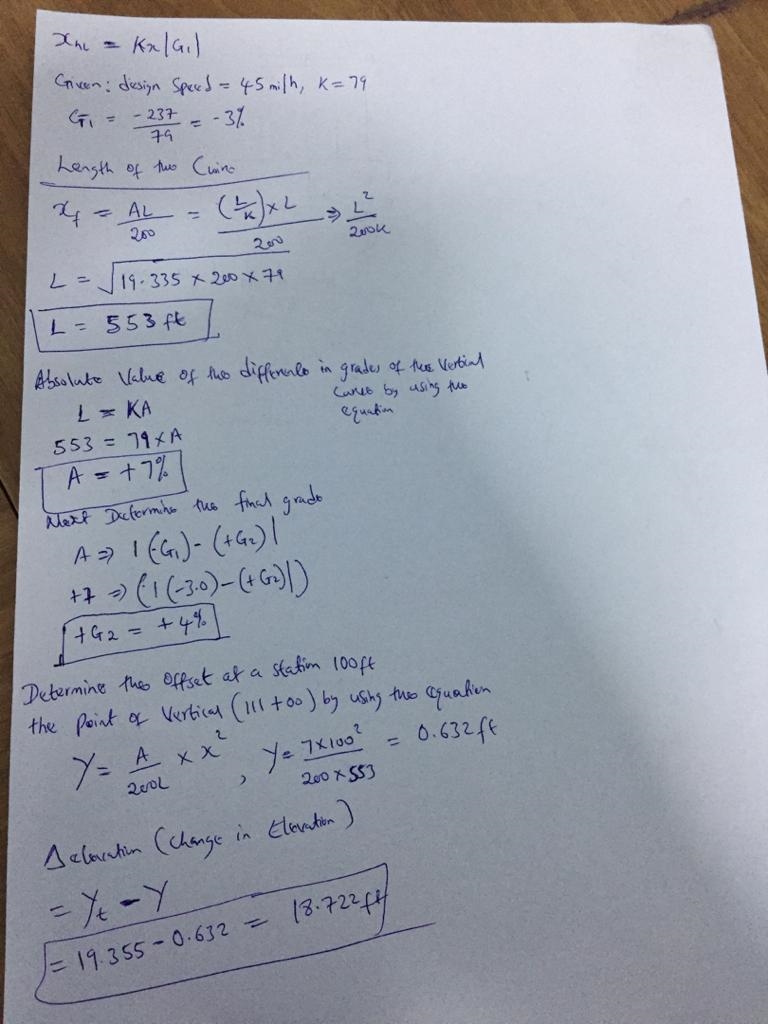 x_hl = Kx|G₁|
Given: design speed = 45 mi/h, K = 79
G₁ = -237/79 = -3%
Length of the Curve
x_f = AL/200 = (L/K)×L/200 ⇒ L²/200K
L = √19.335 × 200 × 79
L = 553 ft
Absolute Value of the difference in grades of the Vertical
curves by using the
equation
L = KA
553 = 79×A
A = +7%
Next Determine the final grade
A ⇒ |(-G₁) - (+G₂)|
+7 ⇒ (|(-3.0) - (+G₂)|)
+G₂ = +4%
Determine the offset at a station 100ft
the point of Vertical (111+00) by using the equation
Y = A/200L × x², Y = 7×100²/200×553 = 0.632 ft
Δ elevation (change in Elevation)
= Y_t - Y
= 19.355 - 0.632 = 18.722 ft